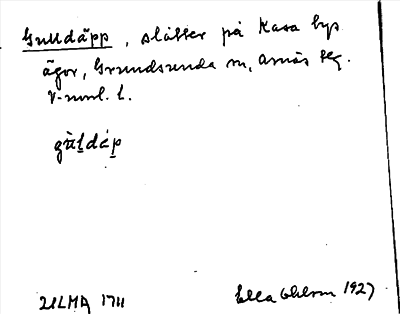 Gulldäpp, slåtter på Kasa bys
ägor, Grundsunda sn, Arnäs tg.
V-norrl. l.
gùldáp
ULMA 1711
Ella Ohlson 1927